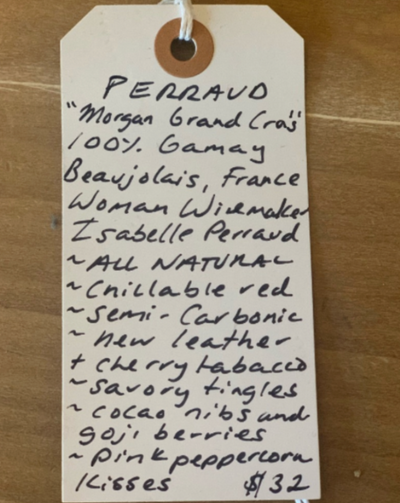 PERRAUD
"Morgan Grand Cras"
100% Gamay
Beaujolais, France
Woman Winemaker
Isabelle Perraud
~ ALL NATURAL
~ Chillable red
~ Semi-Carbonic
~ new leather
+ cherry tabacco
~ savory tingles
~ cocao nibs and
goji berries
~ pink peppercorn
kisses $32